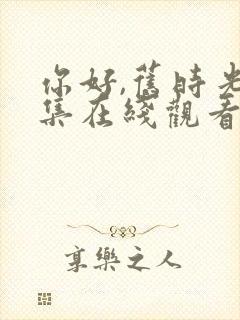 你好,舊時光
集在綫觀看
享樂之人